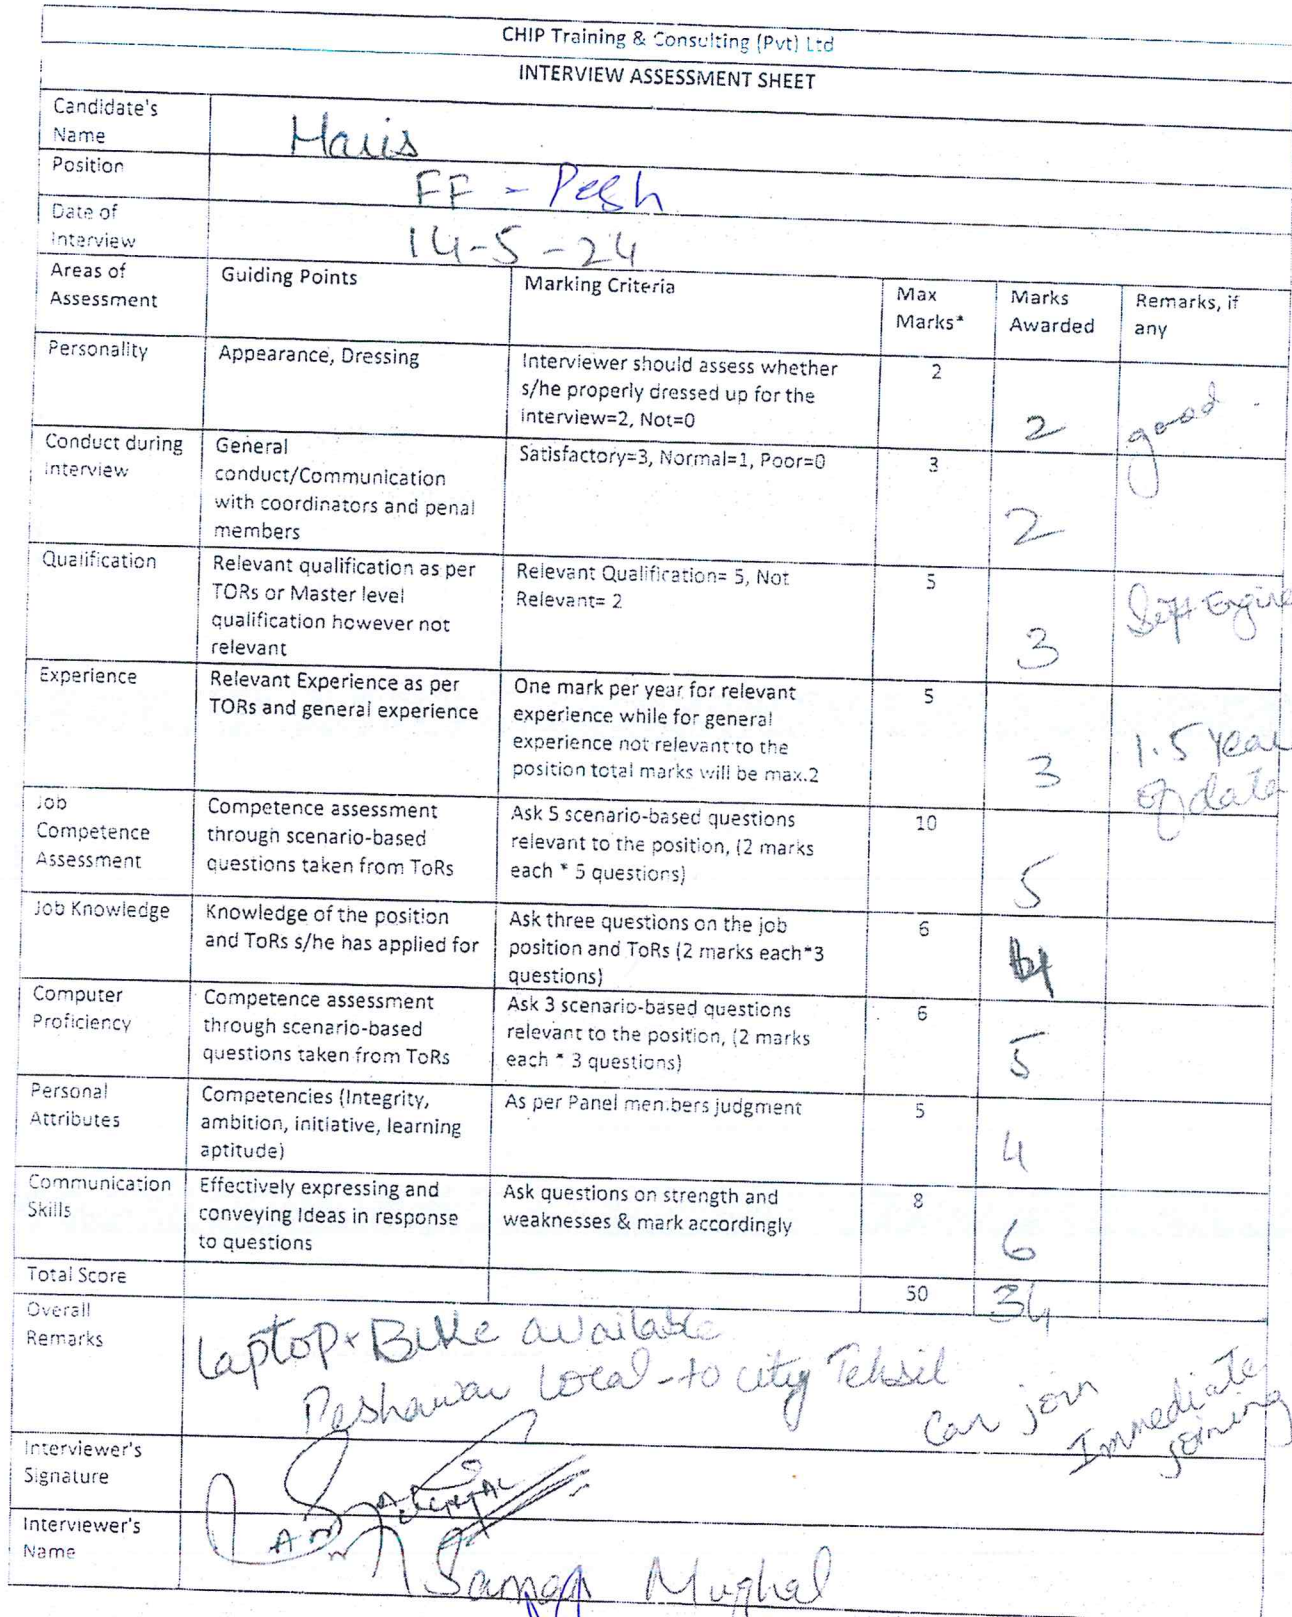 CHIP Training & Consulting (Pvt) Ltd
INTERVIEW ASSESSMENT SHEET
Candidate's
Name
Haris
Position
FF - Pesh
Date of
Interview
14-5-24
Areas of
Assessment
Guiding Points
Marking Criteria
Max
Marks*
Marks
Awarded
Remarks, if
any
Personality
Appearance, Dressing
Interviewer should assess whether
s/he properly dressed up for the
interview=2, Not=0
2
2
good
Conduct during
Interview
General
conduct/Communication
with coordinators and penal
members
Satisfactory=3, Normal=1, Poor=0
3
2
Qualification
Relevant qualification as per
TORs or Master level
qualification however not
relevant
Relevant Qualification= 5, Not
Relevant= 2
5
3
Soft Engine
Experience
Relevant Experience as per
TORs and general experience
One mark per year for relevant
experience while for general
experience not relevant to the
position total marks will be max.2
5
3
1.5 Year
of data
Job
Competence
Assessment
Competence assessment
through scenario-based
questions taken from ToRs
Ask 5 scenario-based questions
relevant to the position, (2 marks
each * 5 questions)
10
5
Job Knowledge
Knowledge of the position
and ToRs s/he has applied for
Ask three questions on the job
position and ToRs (2 marks each*3
questions)
6
4
Computer
Proficiency
Competence assessment
through scenario-based
questions taken from ToRs
Ask 3 scenario-based questions
relevant to the position, (2 marks
each * 3 questions)
6
5
Personal
Attributes
Competencies (Integrity,
ambition, initiative, learning
aptitude)
As per Panel members judgment
5
4
Communication
Skills
Effectively expressing and
conveying Ideas in response
to questions
Ask questions on strength and
weaknesses & mark accordingly
8
6
Total Score
50
34
Overall
Remarks
Laptop + Bike available
Peshawar Local - to city Tehsil
Can join
Immediate
joining
Interviewer's
Signature
Interviewer's
Name
Mughal